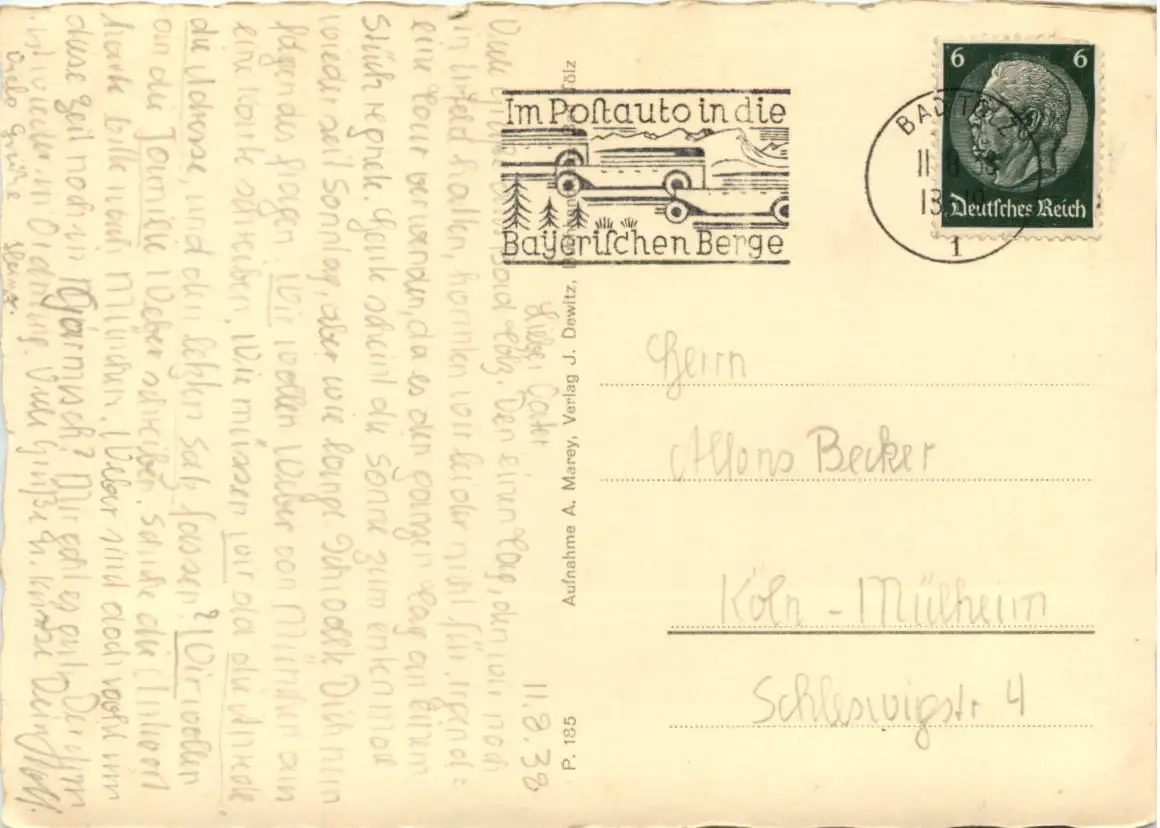 Im Postauto in die
Bayerischen Berge
BAD TÖLZ
1
6 6
Deutsches Reich
Herrn
Alfons Becker
Köln - Mülheim
Schleswigstr 4
P. 185 Aufnahme A. Marey, Verlag J. Dewitz, Tölz
11.8.38
Lieber Vater
Viele Tölz. Den einen Tag, den wir noch
in hatten, konnten wir leider nicht für irgend=
eine Tour verwenden, da es den ganzen Tag an einem
Stück regnete. Heute scheint die Sonne zum ersten mal
wieder seit Sonntag, aber wie lange. Ich wollte Dich nun
folgendes fragen. Wir wollen Weber von München aus
eine Karte schreiben, Wie müssen wir da die Anrede
die Adresse, und den letzten Satz fassen? Wir wollen
an die Familie Weber schreiben. Schicke die Antwort
bitte nach München. Weber sind doch wohl um
diese Zeit noch in Garmisch? Mir geht es gut,
ist wieder in Ordnung. Viele Grüße Dein Rolf.
Viele Grüße